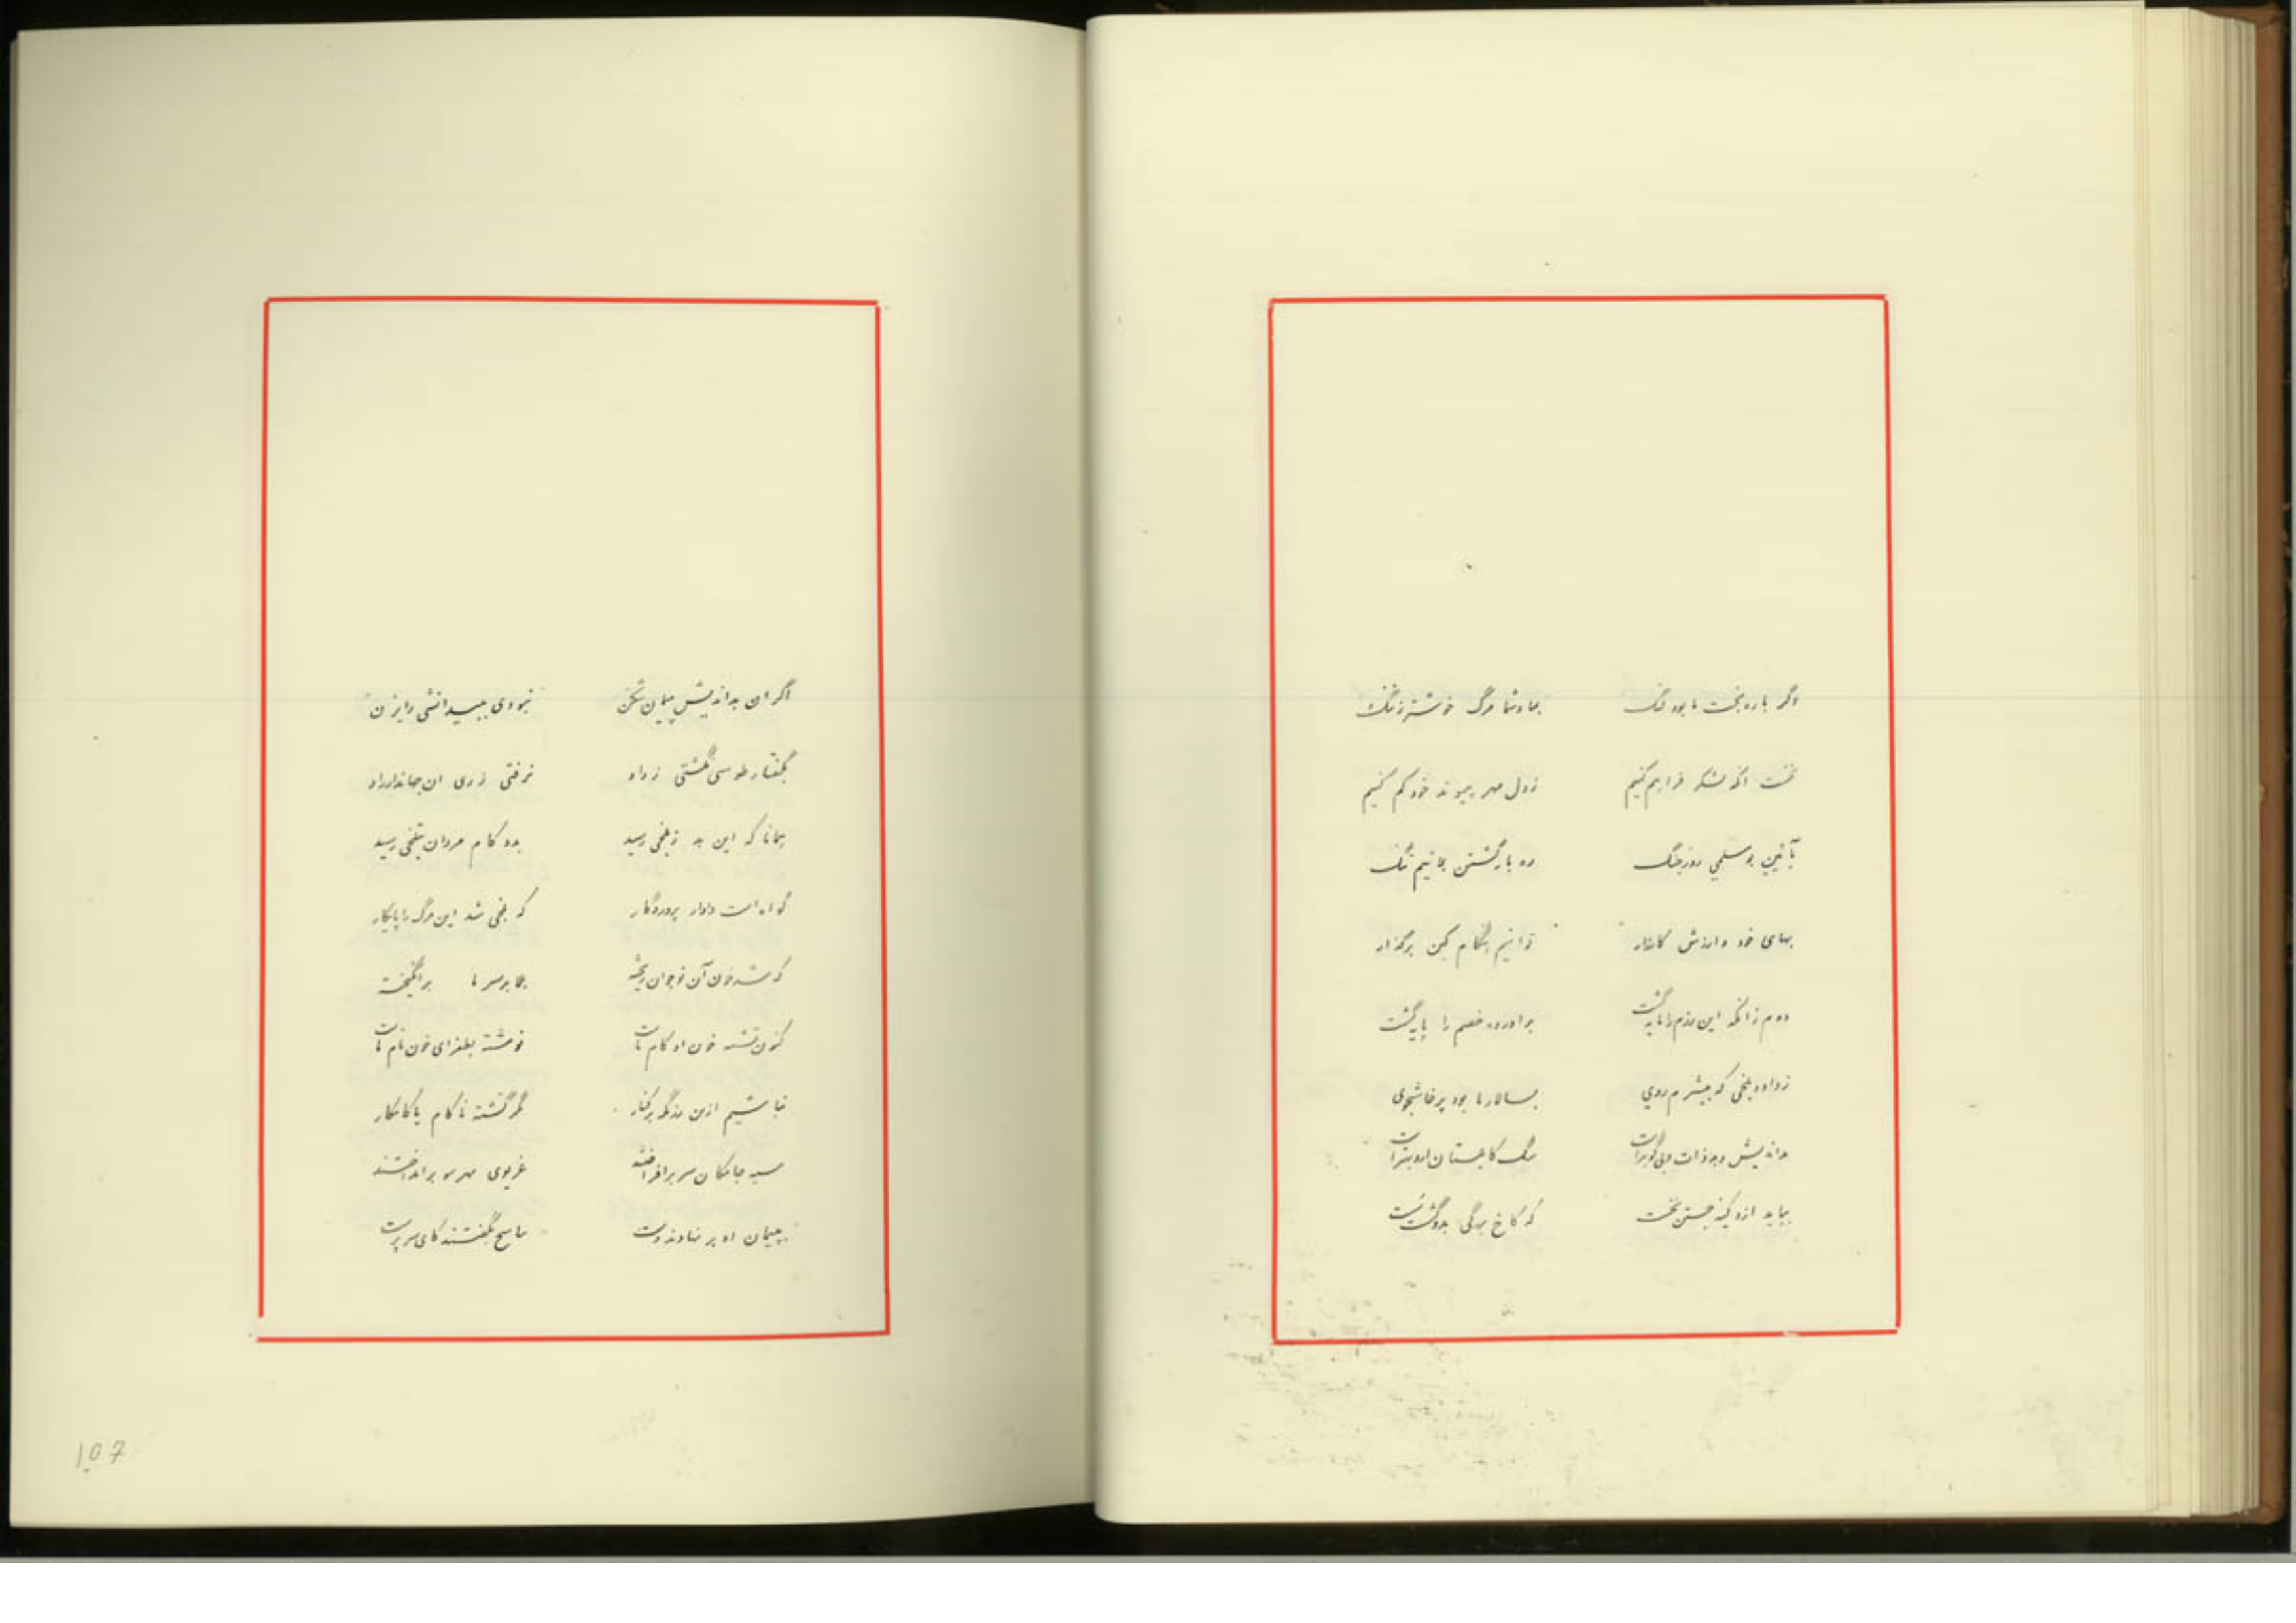 وگر باره بخت ما بود لنگ بما و شما مرگ خوشتر ز ننگ
نخست آنکه لشکر فراهم کنیم ز دل مهر پیوند خود کم کنیم
بآئین بوسلمی روز جنگ ره بازگشتن نمائیم تنگ
بهای خود و ارزش کارزار توانیم هنگام کین برگذار
دوم زانکه این رزم را مایه گشت برآورده خصم را پایه گشت
ز داود بلخی که بیشرم روی بسالار ما بود پرخاشجوی
بداندیش و بدذات و بی گوهر است سگ کابلستان ازو بهتر است
بباید ازو کینه جستن نخست که کاخ بزرگی بدو گشت سست
اگر آن بداندیش پیمان شکن نبودی ببیدانشی رایزن
بگفتار طوسی نگشتی ز داد نرفتی ز ری آن جهاندار راد
همانا که این بد ز بلخی رسید بدو کام مردان بتلخی رسید
گواه است دادار پروردگار که بلخی شد این مرگ را پایکار
که شد خون آن نوجوان ریخته بما بر سر ما برانگیخته
کنون تشنه خون او کام ماست نوشته بطغرای خون نام ماست
نباشیم ازین رزمگه برکنار مگر گشته ناکام یا کامکار
سیه جامگان سر برافراختند غریوی بهر سو برانداختند
به پیمان او بر نهادند دست بپاسخ بگفتند کای سرپرست
107